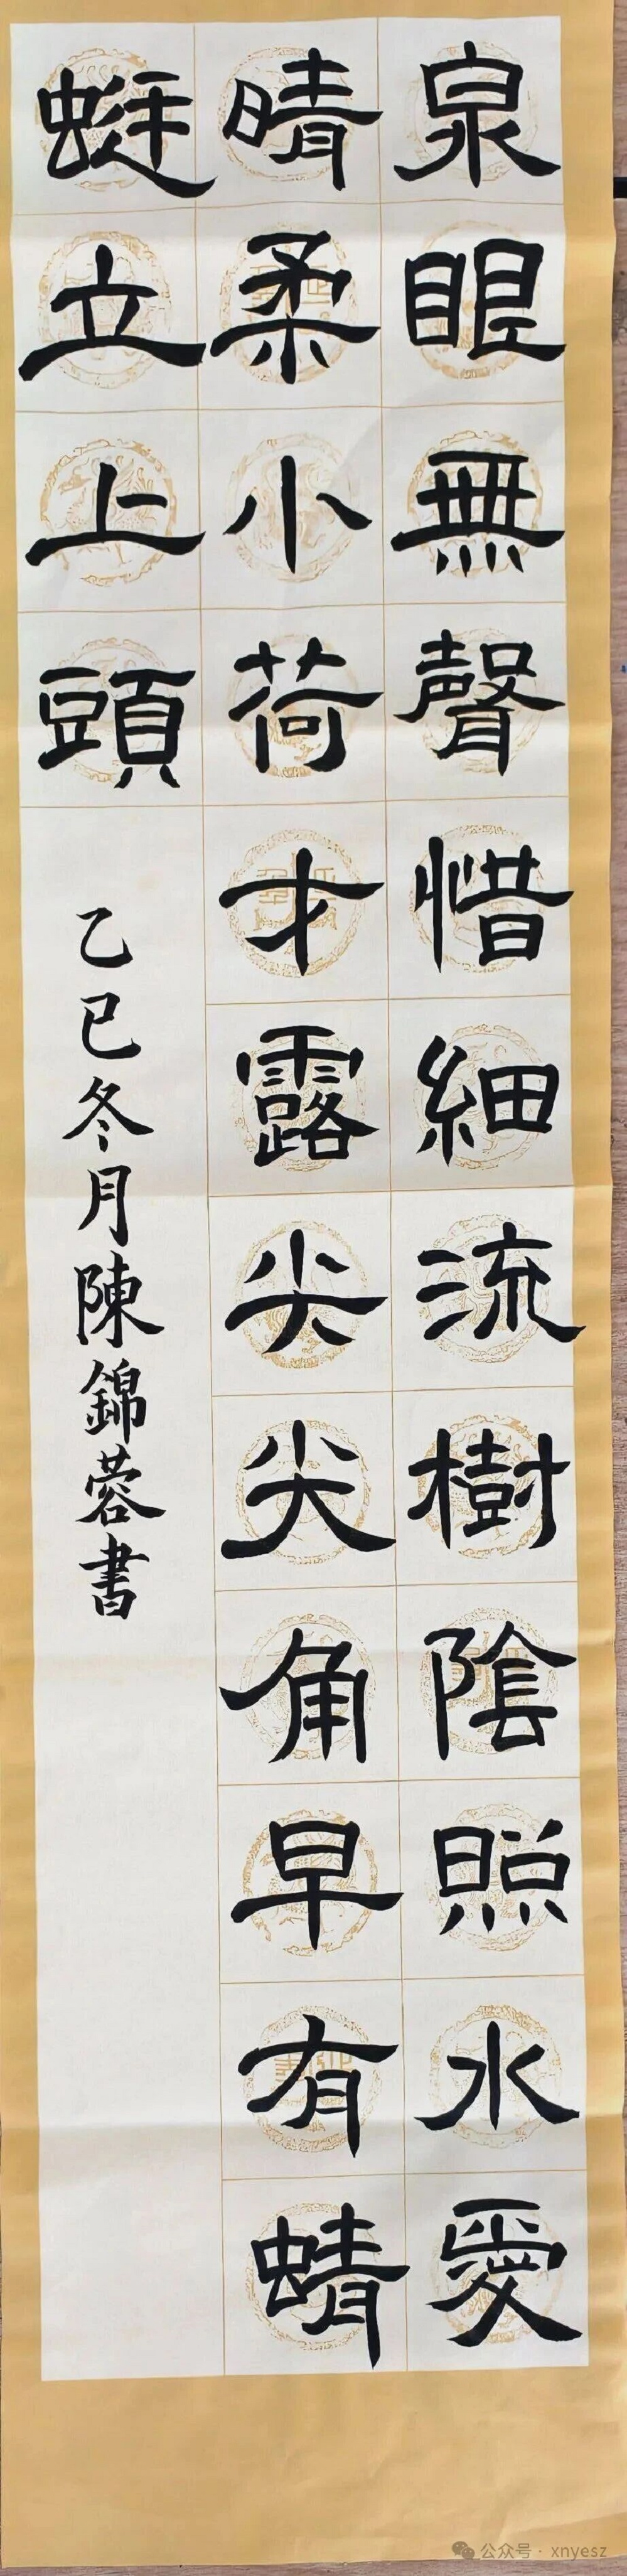 泉眼無聲惜細流樹陰照水愛
晴柔小荷才露尖尖角早有蜻
蜓立上頭
乙巳冬月陳錦蓉書
公众号 · xnyesz